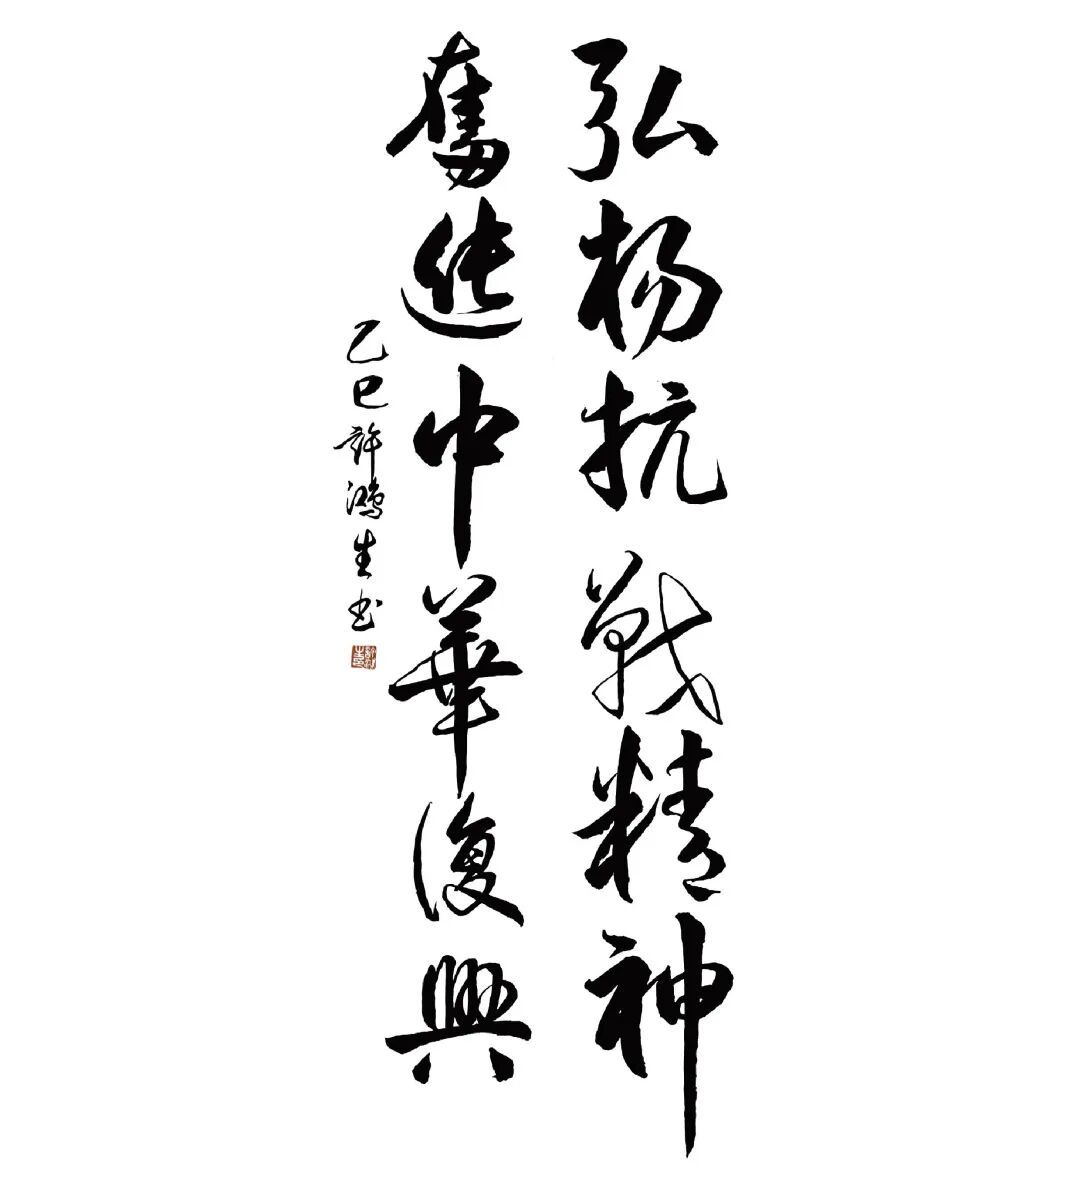 弘扬抗戰精神
奮進中華復興
乙巳許鴻生书